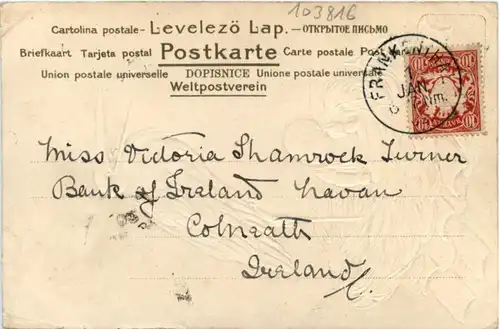 103816
Cartolina postale- Levelező Lap. -ОТКРЫТОЕ ПИСЬМО
Briefkaart Tarjeta postal Postkarte Carte postale Post
Union postale universelle DOPISNICE Unione postale universale
Weltpostverein
FRANKENTHAL
1 JAN
6 Nm.
10 10
Miss Victoria Shamrock Turner
Bank of Ireland Navan
Co Meath
Ireland